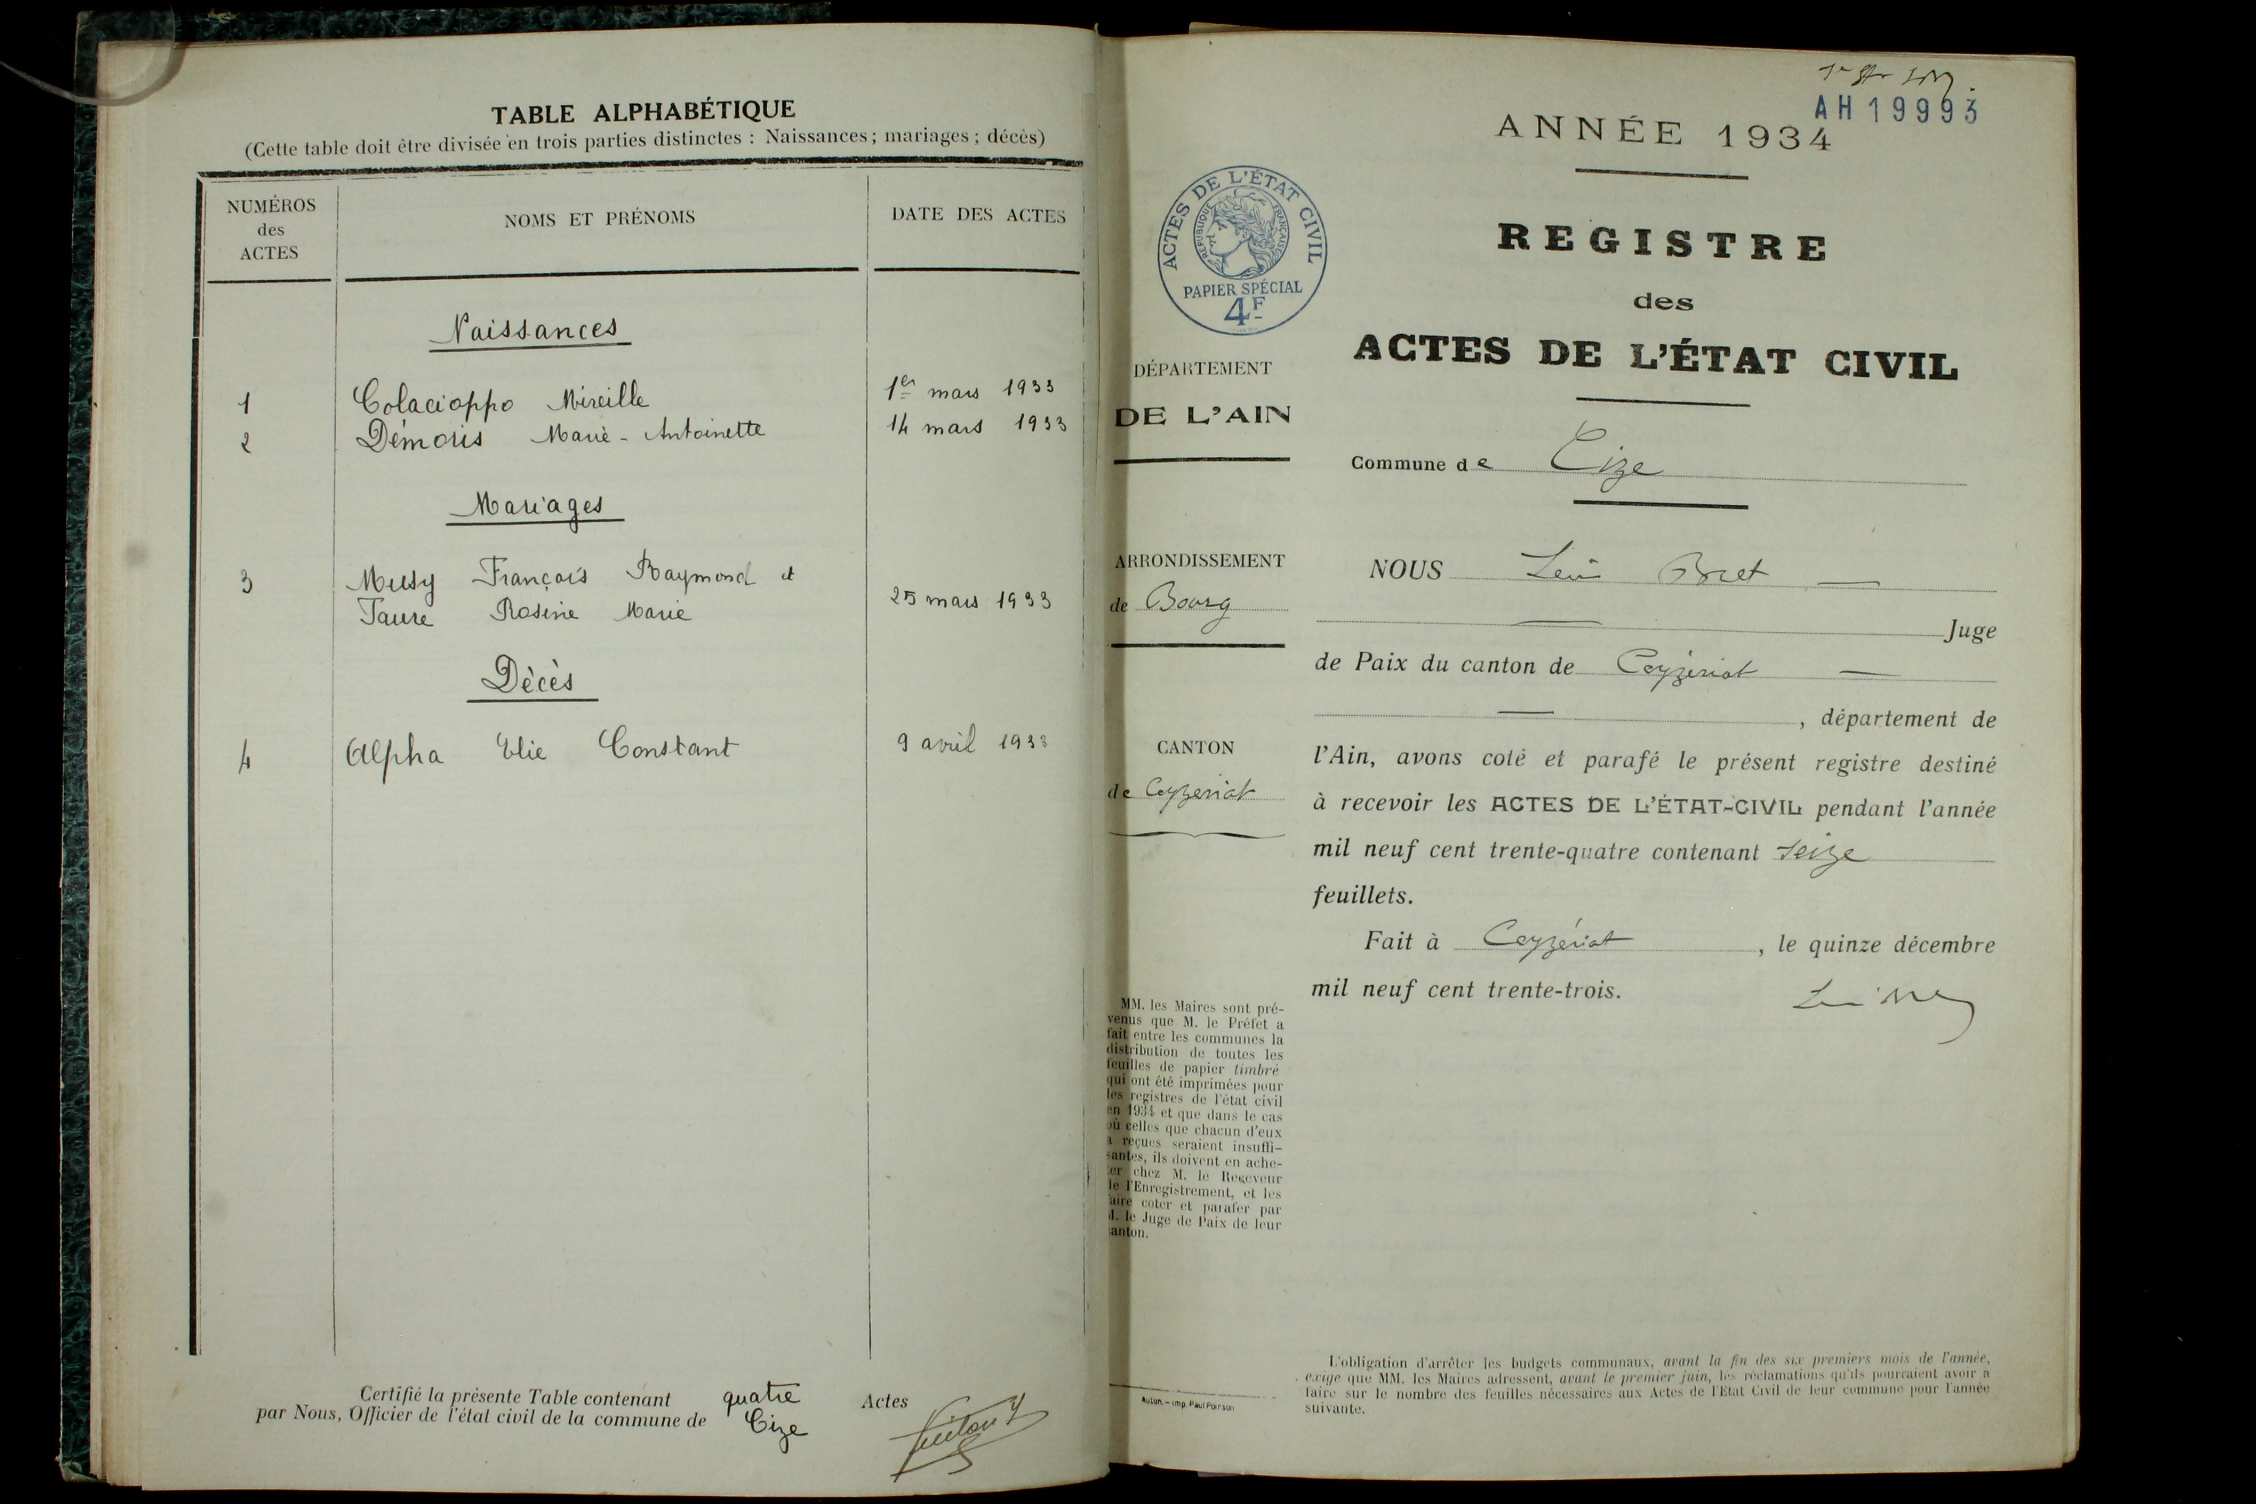 TABLE ALPHABÉTIQUE
(Cette table doit être divisée en trois parties distinctes : Naissances ; mariages ; décès)
NUMÉROS
des
ACTES
NOMS ET PRÉNOMS
DATE DES ACTES
Naissances
1 Colacioppo Mireille 1er mars 1933
2 Démoris Marie-Antoinette 14 mars 1933
Mariages
3 Musy François Raymond et
Faure Rosine Marie 25 mars 1933
Décès
4 Alpha Elie Constant 9 avril 1933
Certifié la présente Table contenant quatre Actes
par Nous, Officier de l'état civil de la commune de Cize
AH 19993
ANNÉE 1934
ACTES DE L'ÉTAT CIVIL
RÉPUBLIQUE FRANÇAISE
PAPIER SPÉCIAL
4F
REGISTRE
des
ACTES DE L'ÉTAT CIVIL
DÉPARTEMENT
DE L'AIN
Commune de Cize
ARRONDISSEMENT
de Bourg
CANTON
de Ceyzériat
NOUS Bret
Juge
de Paix du canton de Ceyzériat
, département de
l'Ain, avons coté et parafé le présent registre destiné
à recevoir les ACTES DE L'ÉTAT-CIVIL pendant l'année
mil neuf cent trente-quatre contenant seize
feuillets.
Fait à Ceyzériat, le quinze décembre
mil neuf cent trente-trois.
MM. les Maires sont pré-
venus que M. le Préfet a
fait entre les communes la
distribution de toutes les
feuilles de papier timbré
qui ont été imprimées pour
les registres de l'état civil
en 1934 et que dans le cas
où celles que chacun d'eux
a reçues seraient insuffi-
santes, ils doivent en ache-
ter chez M. le Receveur
de l'Enregistrement, et les
faire coter et parafer par
M. le Juge de Paix de leur
canton.
Autun. – Imp. Paul Poirson
L'obligation d'arrêter les budgets communaux, avant la fin des six premiers mois de l'année,
exige que MM. les Maires adressent, avant le premier juin, les réclamations qu'ils pourraient avoir à
faire sur le nombre des feuilles nécessaires aux Actes de l'Etat Civil de leur commune pour l'année
suivante.